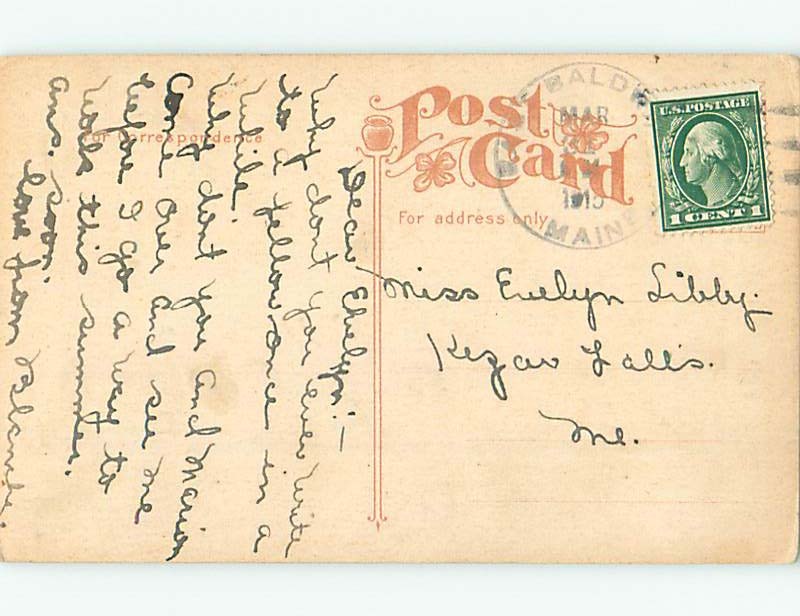 Post
Card
For correspondence
For address only
BALD
MAR
MAINE
U.S. POSTAGE
1 CENT 1
Dear Evelyn:—
Why dont you ever write
to a fellow once in a
while.
Why dont you and Marion
Come over and see me
before I go a way to
work this summer.
ans. soon.
love from
Miss Evelyn Libby.
Kezar Falls.
Me.